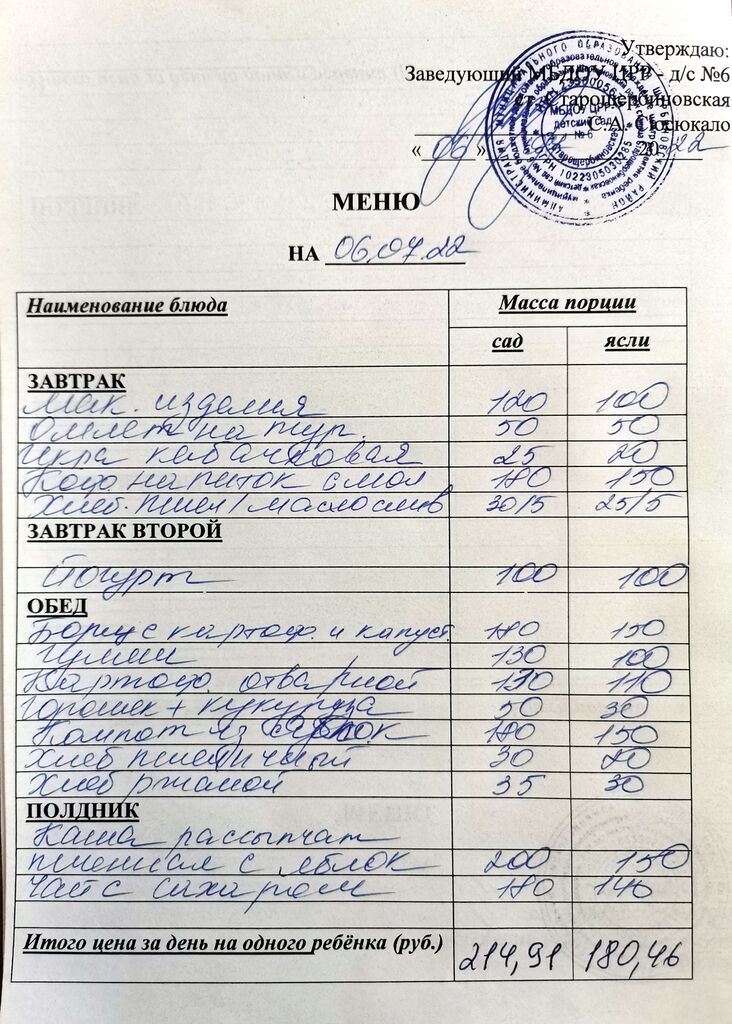 Утверждаю:
Заведующий МБДОУ ЦРР - д/с №6
ст. Старощербиновская
С.А. Сюсюкало
« 06 » 20 22
МЕНЮ
НА 06.07.22
Наименование блюда Масса порции
сад ясли
ЗАВТРАК
Мак. изделия 120 100
Омлет на пур. 50 50
Икра кабачковая 25 20
Коф. напиток с мол 180 150
Хлеб. пшен/масло слив 30/5 25/5
ЗАВТРАК ВТОРОЙ
Йогурт 100 100
ОБЕД
Борщ с картоф. и капуст. 180 150
130 100
Картоф. отварной 130 110
Горошек + кукуруза 50 30
Компот из яблок 180 150
Хлеб пшеничный 30 20
Хлеб ржаной 35 30
ПОЛДНИК
Каша рассыпчат
пшенная с яблок 200 150
Чай с сахаром 180 140
Итого цена за день на одного ребёнка (руб.) 214,91 180,46
МБДОУ ЦРР
детский сад
№ 6
ОГРН 1022305030285